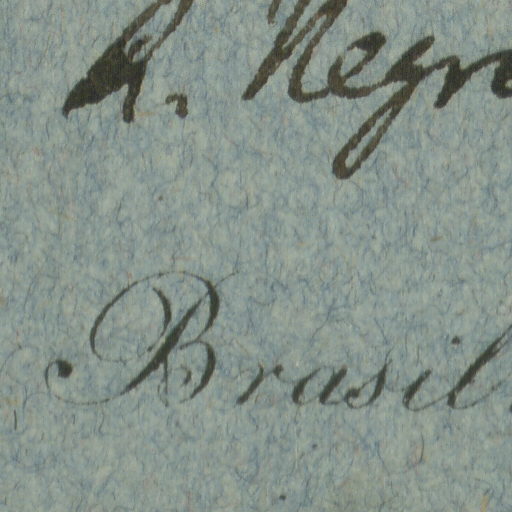 R. Negro
Brasil.